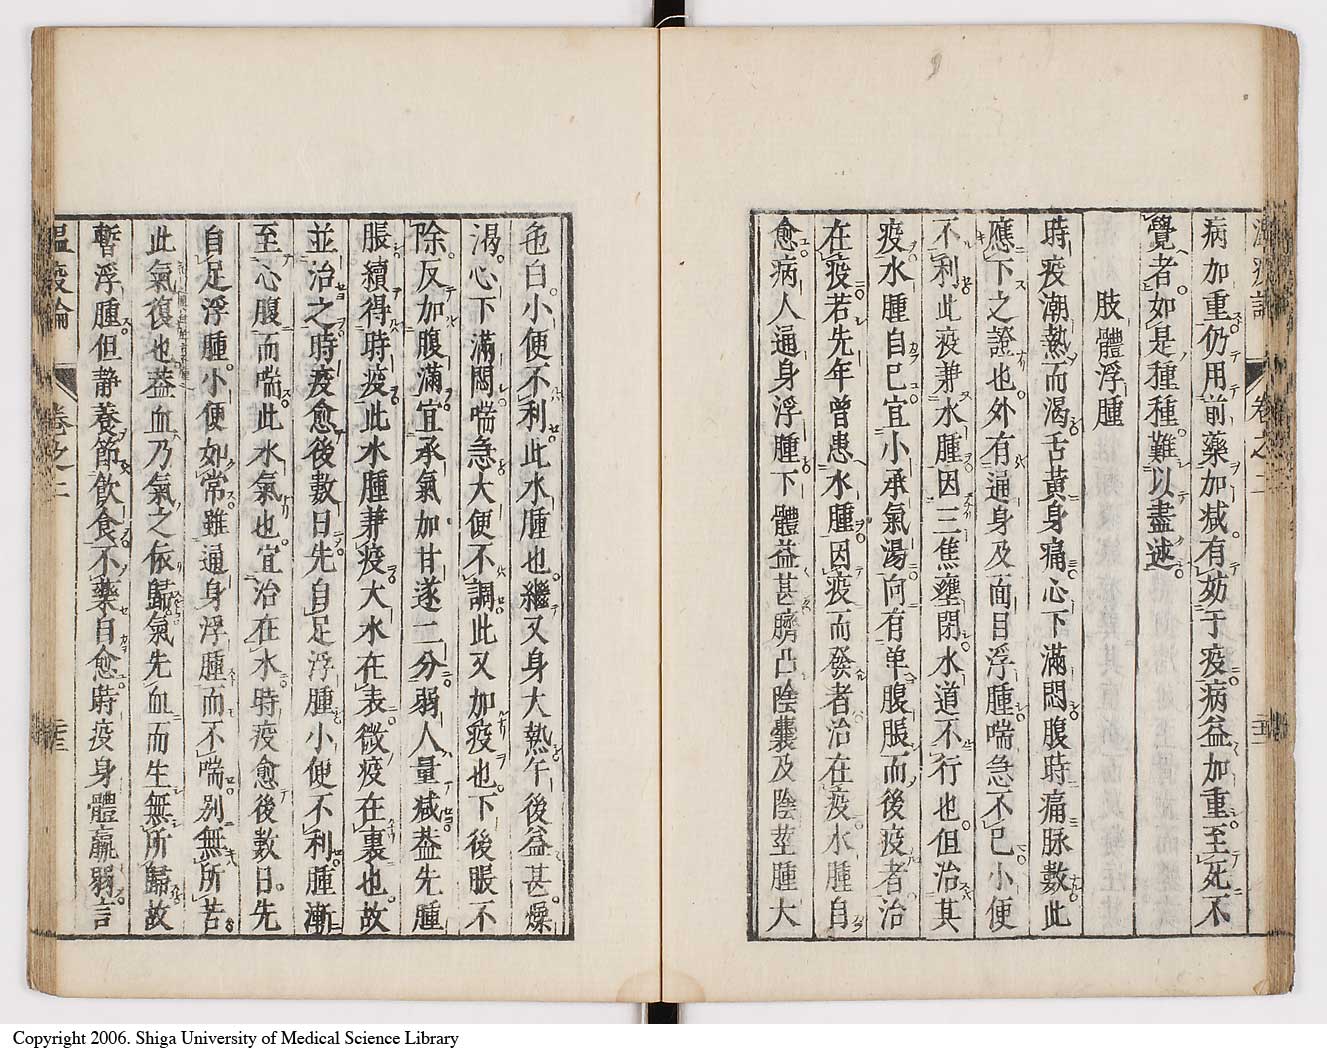 病加重仍用前藥加减有妨于疫病益加重至死不
覺者如是種種難以盡述
肢體浮腫
時疫潮熱而渴舌黃身痛心下滿悶腹時痛脉數此
應下之證也外有通身及面目浮腫喘急不已小便
不利此疫兼水腫因三焦壅閉水道不行也但治其
疫水腫自已宜小承氣湯向有单腹脹而後疫者治
在疫若先年曾患水腫因疫而發者治在疫水腫自
愈病人通身浮腫下體益甚臍凸陰囊及陰莖腫大
色白小便不利此水腫也繼又身大熱午後益甚燥
渴心下滿悶喘急大便不調此又加疫也下後脹不
除反加腹滿宜承氣加甘遂二分弱人量减葢先腫
脹續得時疫此水腫兼疫大水在表微疫在裏也故
並治之時疫愈後數日先自足浮腫小便不利腫漸
至心腹而喘此水氣也宜治在水時疫愈後數日先
自足浮腫小便如常雖通身浮腫而不喘别無所苦
此氣復也葢血乃氣之依歸氣先血而生無所歸故
暫浮腫但静養節飲食不藥自愈時疫身體羸弱言
溫疫論 卷之二
Copyright 2006. Shiga University of Medical Science Library